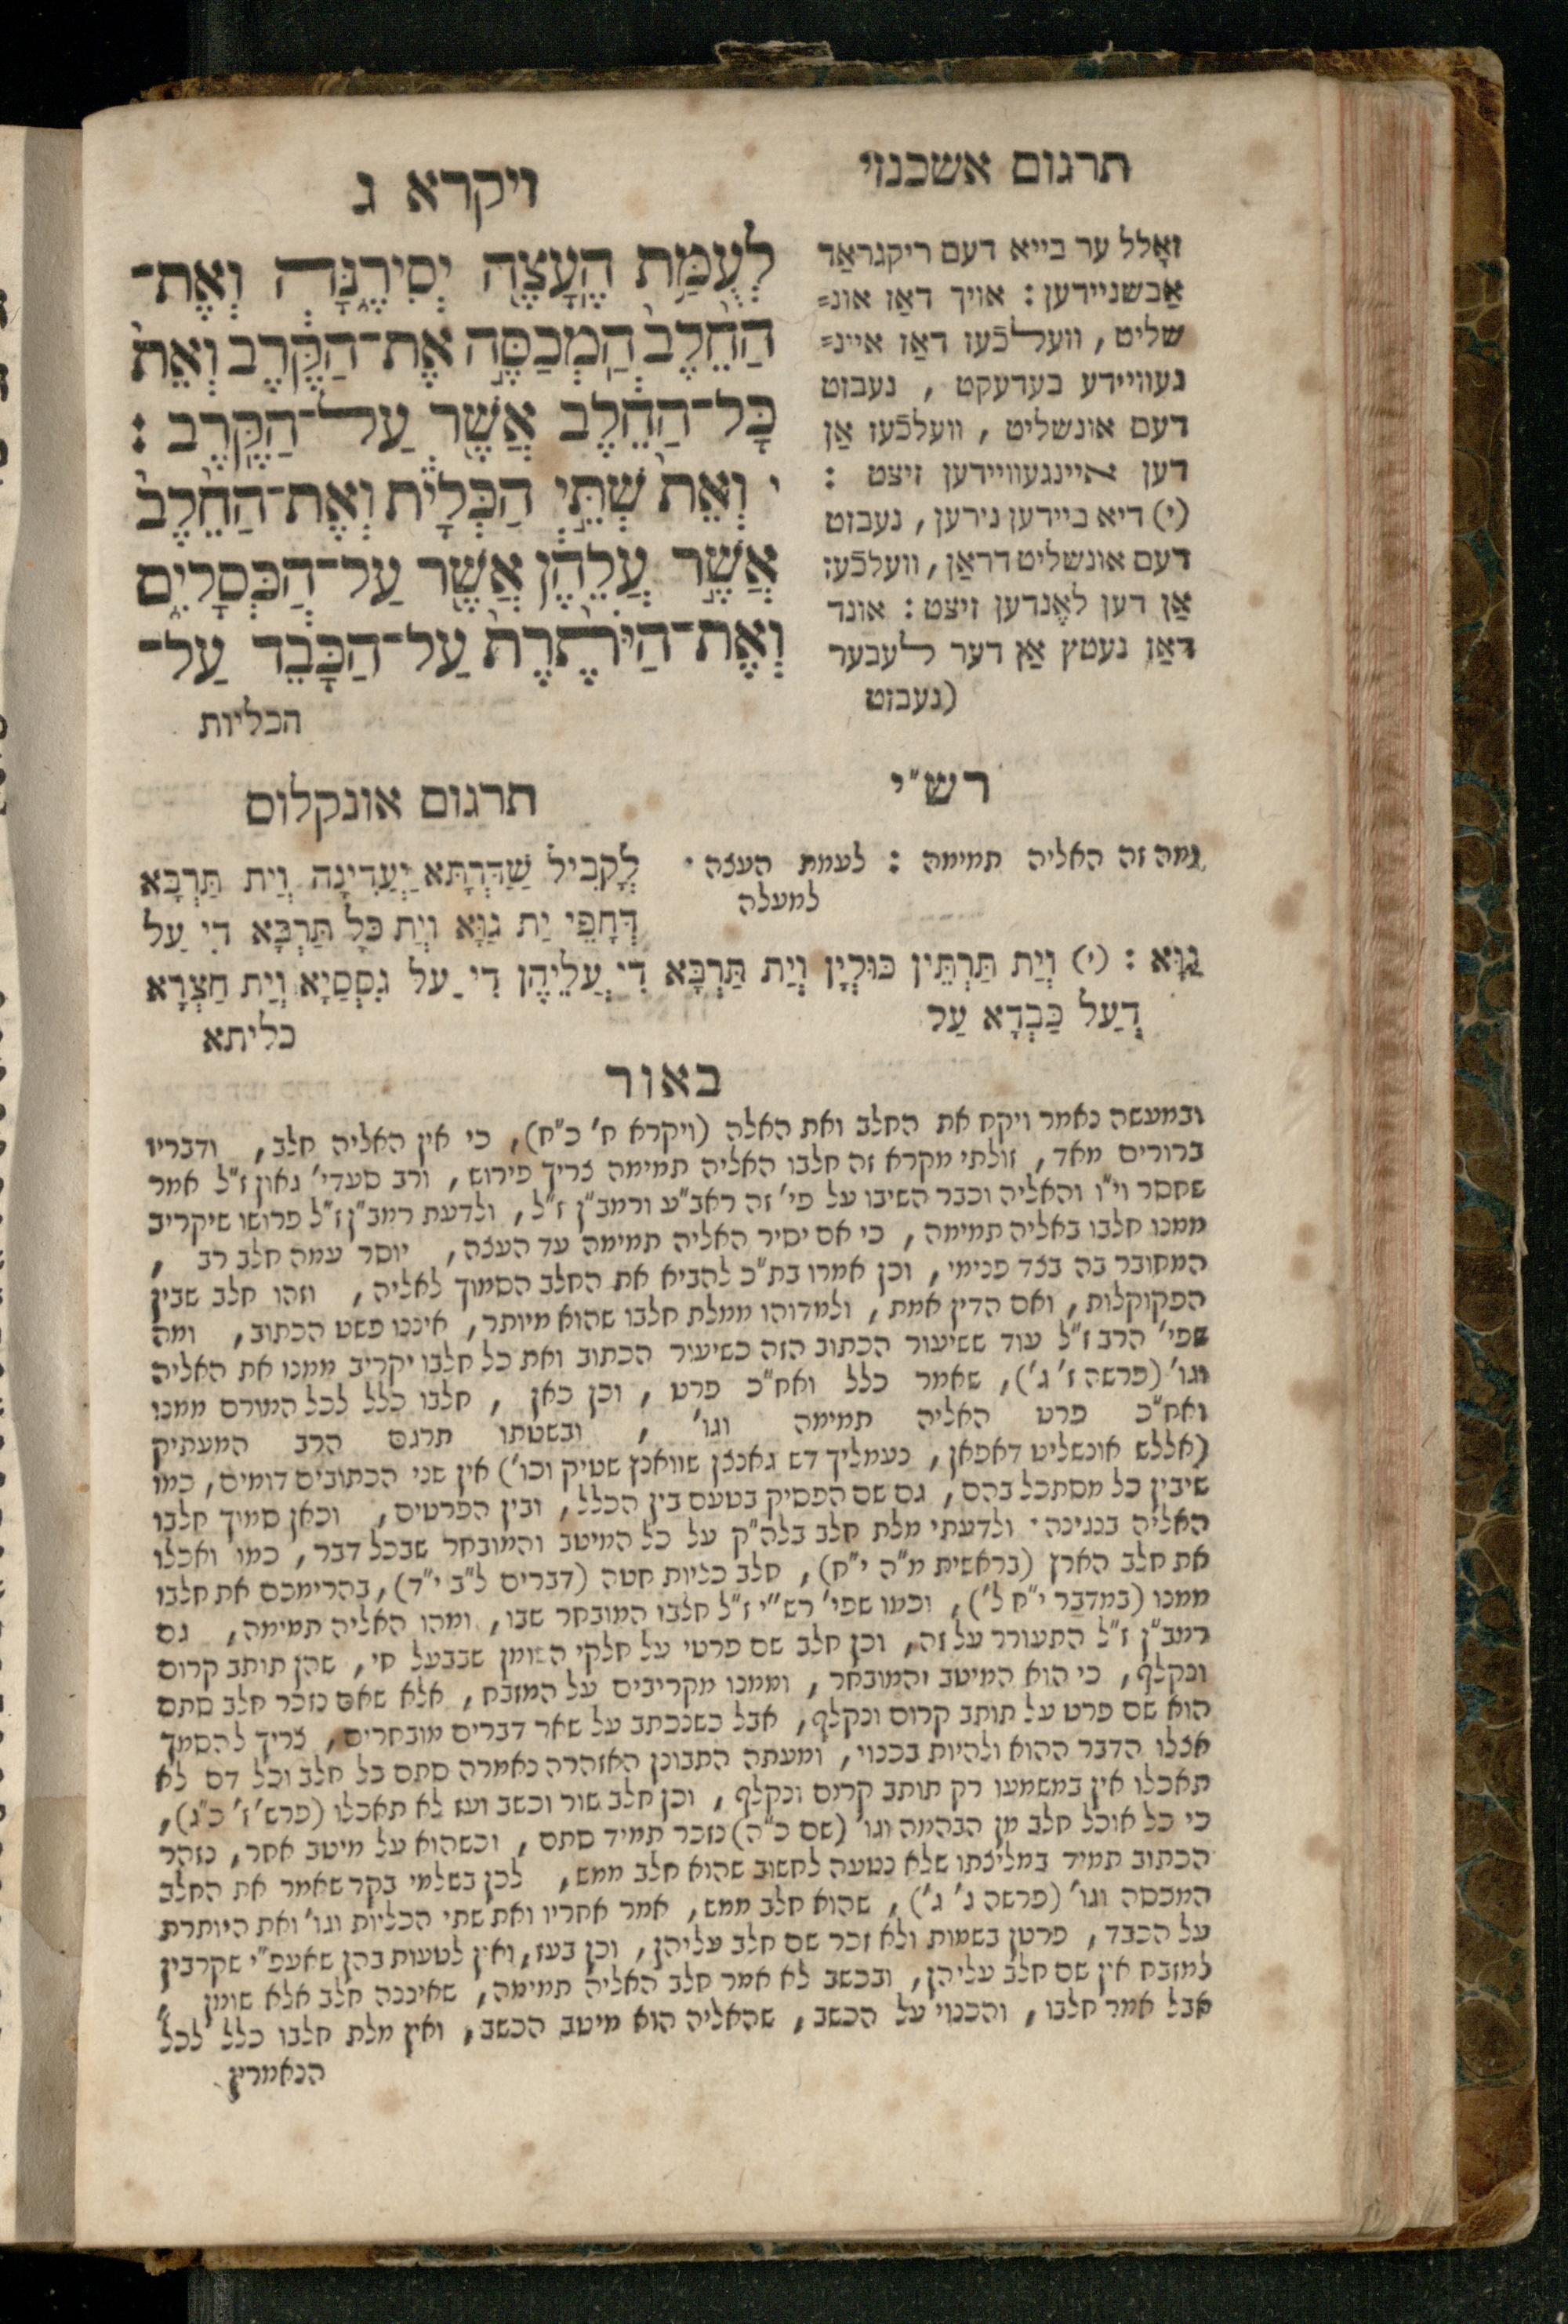 ויקרא ג
לְעֻמַּת הֶעָצֶה יְסִירֶנָּה וְאֶת־
הַחֵלֶב הַמְכַסֶּה אֶת־הַקֶּרֶב וְאֵת
כָּל־הַחֵלֶב אֲשֶׁר עַל־הַקֶּרֶב :
י וְאֵת שְׁתֵּי הַכְּלָיֹת וְאֶת־הַחֵלֶב
אֲשֶׁר עֲלֵהֶן אֲשֶׁר עַל־הַכְּסָלִים
וְאֶת־הַיֹּתֶרֶת עַל־הַכָּבֵד עַל־
הכליות
תרגום אשכנזי
זאָלל ער בייא דעם ריקגראַד
אַבשניידען : אויך דאַז אונ=
שליט , וועלכֿעז דאַז איינ=
געוויידע בעדעקט , נעבזט
דעם אונשליט , וועלכֿעז אַן
דען איינגעוויידען זיצט :
(י) דיא ביידען נירען , נעבזט
דעם אונשליט דראַן , וועלכֿעז
אַן דען לאֶנדען זיצט : אונד
דאַז נעטץ אַן דער לעבער
(נעבזט
רש"י
ומה זה האליה תמימה : לעמת העצה .
למעלה
תרגום אונקלוס
לָקֳבֵיל שַׁדְרְתָא יַעֲדִינָהּ וְיַת תַּרְבָּא
דְּחָפֵי יַת גַוָּא וְיַת כָּל תַּרְבָּא דִי עַל
גַוָּא : (י) וְיַת תַּרְתֵּין כּוּלְיָן וְיַת תַּרְבָּא דִי עֲלֵיהֶן דִי עַל גִסְסַיָא וְיַת חַצְרָא
דְעַל כַּבְדָא עַל
כליתא
באור
ובמעשה נאמר ויקח את החלב ואת האלה (ויקרא ח' כ"ח), כי אין האליה חלב, ודבריו
ברורים מאד, זולתי מקרא זה חלבו האליה תמימה צריך פירוש, ורב סעדי' גאון ז"ל אמר
שחסר וי"ו והאליה וכבר השיבו על פי' זה ראב"ע ורמב"ן ז"ל, ולדעת רמב"ן ז"ל פרושו שיקריב
ממנו חלבו באליה תמימה, כי אם יסיר האליה תמימה עד העצה, יוסר עמה חלב רב ,
המחובר בה בצד פנימי, וכן אמרו בת"כ להביא את החלב הסמוך לאליה, וזהו חלב שבין
הפקוקלות, ואם הדין אמת, ולמדוהו ממלת חלבו שהוא מיותר, איננו פשט הכתוב, ומה
שפי' הרב ז"ל עוד ששיעור הכתוב הזה כשיעור הכתוב ואת כל חלבו יקריב ממנו את האליה
וגו' (פרשה ז' ג'), שאמר כלל ואח"כ פרט , וכן כאן , חלבו כלל לכל המורם ממנו
ואח"כ פרט האליה תמימה וגו' , ובשטתו תרגם הרב המעתיק
(אללש אונשליט דאפאן, נעמליך דש גאנצן שוואנץ שטיק וכו') אין שני הכתובים דומים, כמו
שיבין כל מסתכל בהם, גם שם הפסיק בטעם בין הכלל, ובין הפרטים, וכאן סמוך חלבו
האליה בנגינה . ולדעתי מלת חלב בלה"ק על כל המיטב והמובחר שבכל דבר, כמו ואכלו
את חלב הארץ (בראשית מ"ה י"ח), חלב כליות חטה (דברים ל"ב י"ד), בהרימכם את חלבו
ממנו (במדבר י"ח ל'), וכמו שפי' רש"י ז"ל חלבו המובחר שבו, ומהו האליה תמימה, גם
רמב"ן ז"ל התעורר על זה, וכן חלב שם פרטי על חלקי השומן שבבעל חי, שהן תותב קרום
ונקלף, כי הוא המיטב והמובחר, וממנו מקריבים על המזבח, אלא שאם נזכר חלב סתם
הוא שם פרט על תותב קרום ונקלף, אבל כשנכתב על שאר דברים מובחרים, צריך להסמך
אצלו הדבר ההוא ולהיות בכנוי, ומעתה התבונן האזהרה נאמרה סתם כל חלב וכל דם לא
תאכלו אין במשמעו רק תותב קרום ונקלף , וכן חלב שור וכשב ועז לא תאכלו (פרש' ז' כ"ג),
כי כל אוכל חלב מן הבהמה וגו' (שם כ"ה) נזכר תמיד סתם , וכשהוא על מיטב אחר, נזהר
הכתוב תמיד במליצתו שלא נטעה לחשוב שהוא חלב ממש, לכן בשלמי בקר שאמר את החלב
המכסה וגו' (פרשה ג' ג'), שהוא חלב ממש, אמר אחריו ואת שתי הכליות וגו' ואת היותרת
על הכבד, פרטן בשמות ולא זכר שם חלב עליהן, וכן בעז, ואין לטעות בהן שאעפ"י שקרבין
למזבח אין שם חלב עליהן, ובכשב לא אמר חלב האליה תמימה, שאיננה חלב אלא שומן ,
אבל אמר חלבו, והכנוי על הכשב, שהאליה הוא מיטב הכשב, ואין מלת חלבו כלל לכל
הנאמרין